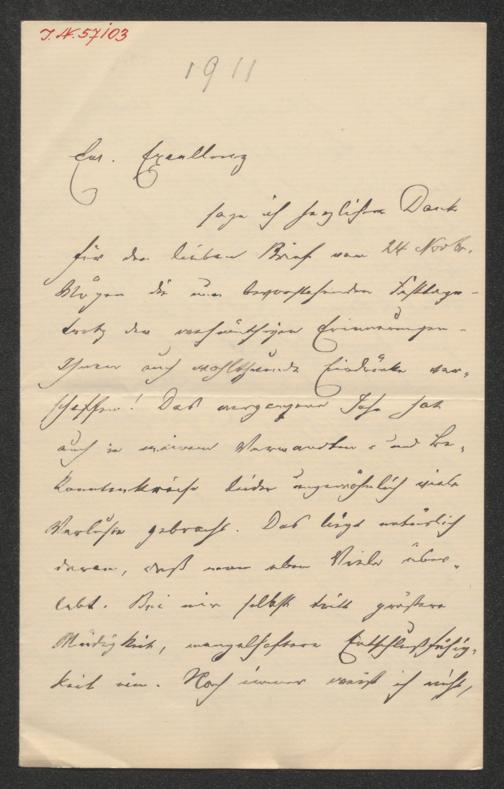 J. N. 57103
1911
Eur. Exzellenz
sage ich herzlichen Dank
für den lieben Brief vom 24 Novbr.
Mögen die nun bevorstehenden Festtage –
trotz der wehmüthigen Erinnerungen –
Ihnen auch wohlthuende Eindrücke ver-
schaffen! Das vergangene Jahr hat
auch in meinem Verwandten- und Be-
kanntenkreise leider ungewöhnlich viele
Verluste gebracht. Das liegt natürlich
daran, daß man eben Viele über-
lebt. Bei mir selbst tritt größere
Müdigkeit, mangelhaftere Entschlußfähig-
keit ein. Noch immer weiß ich nicht,